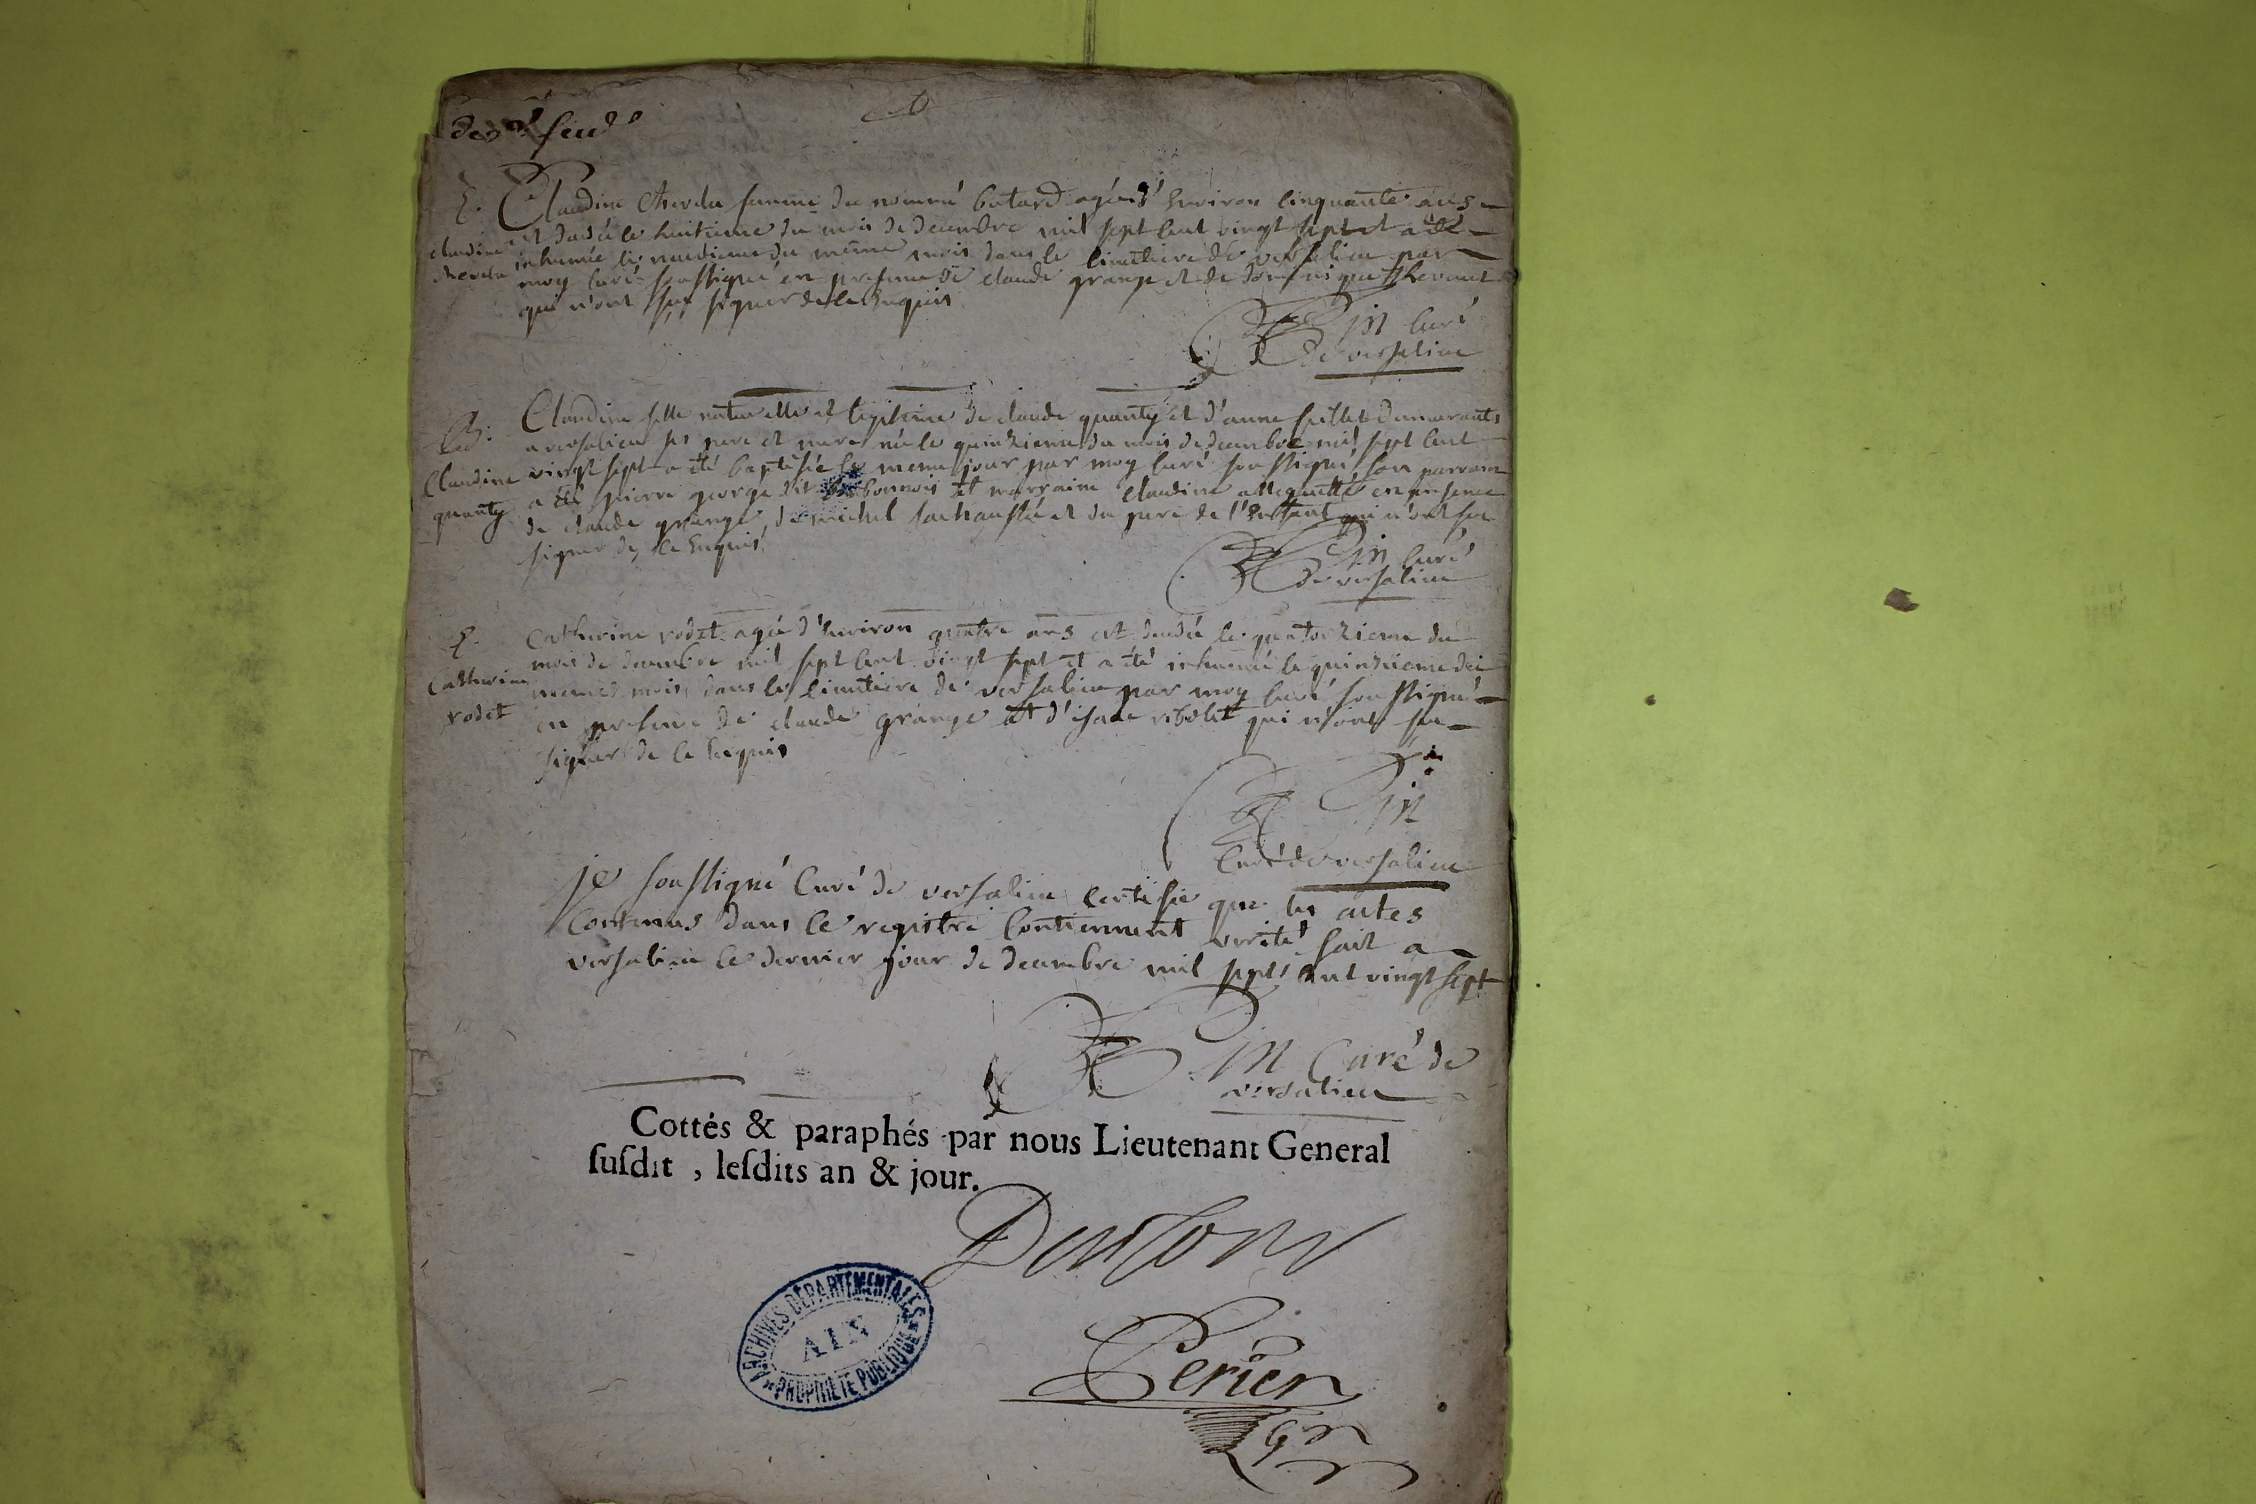 Claudine femme du nommé batard agée d'environ cinquante ans
est decedée le huitieme du mois de decembre mil sept cent vingt sept et a été
claudine
inhumée le neuvieme du même mois dans le cimetiere de versalieu par
moy curé soussigné en presence de claude grange et de
qui n'ont sçu signer de ce enquis
curé
de versalieu
Claudine fille naturelle et legitime de claude quanty et d'anne demeurants
B.
a versalieu ses pere et mere née le quinzieme du mois de decembre mil sept cent
Claudine
vingt sept a été baptisée le meme jour par moy curé soussigné son parrain
quanty
a été pierre george dit et marraine claudine en presence
de claude grange, de michel et du pere de l'enfant qui n'ont sçu
signer de ce enquis
curé
de versalieu
Catherine rodet agée d'environ quatre ans est decedée le quatorzieme du
mois de decembre mil sept cent vingt sept et a été inhumée le quinzieme du
Catherine
meme mois dans le cimetiere de versalieu par moy curé soussigné
rodet
en presence de claude grange et d'isaac qui n'ont sçu
signer de ce enquis
curé de versalieu
je soussigné curé de versalieu certifie que les actes
contenus dans ce registre contiennent verité fait a
versalieu ce dernier jour de decembre mil sept cent vingt sept
curé de
versalieu
Cottés & paraphés par nous Lieutenant General
ſuſdit , leſdits an & jour.
Perier
ARCHIVES DÉPARTEMENTALES
AIN
PROPRIÉTÉ PUBLIQUE